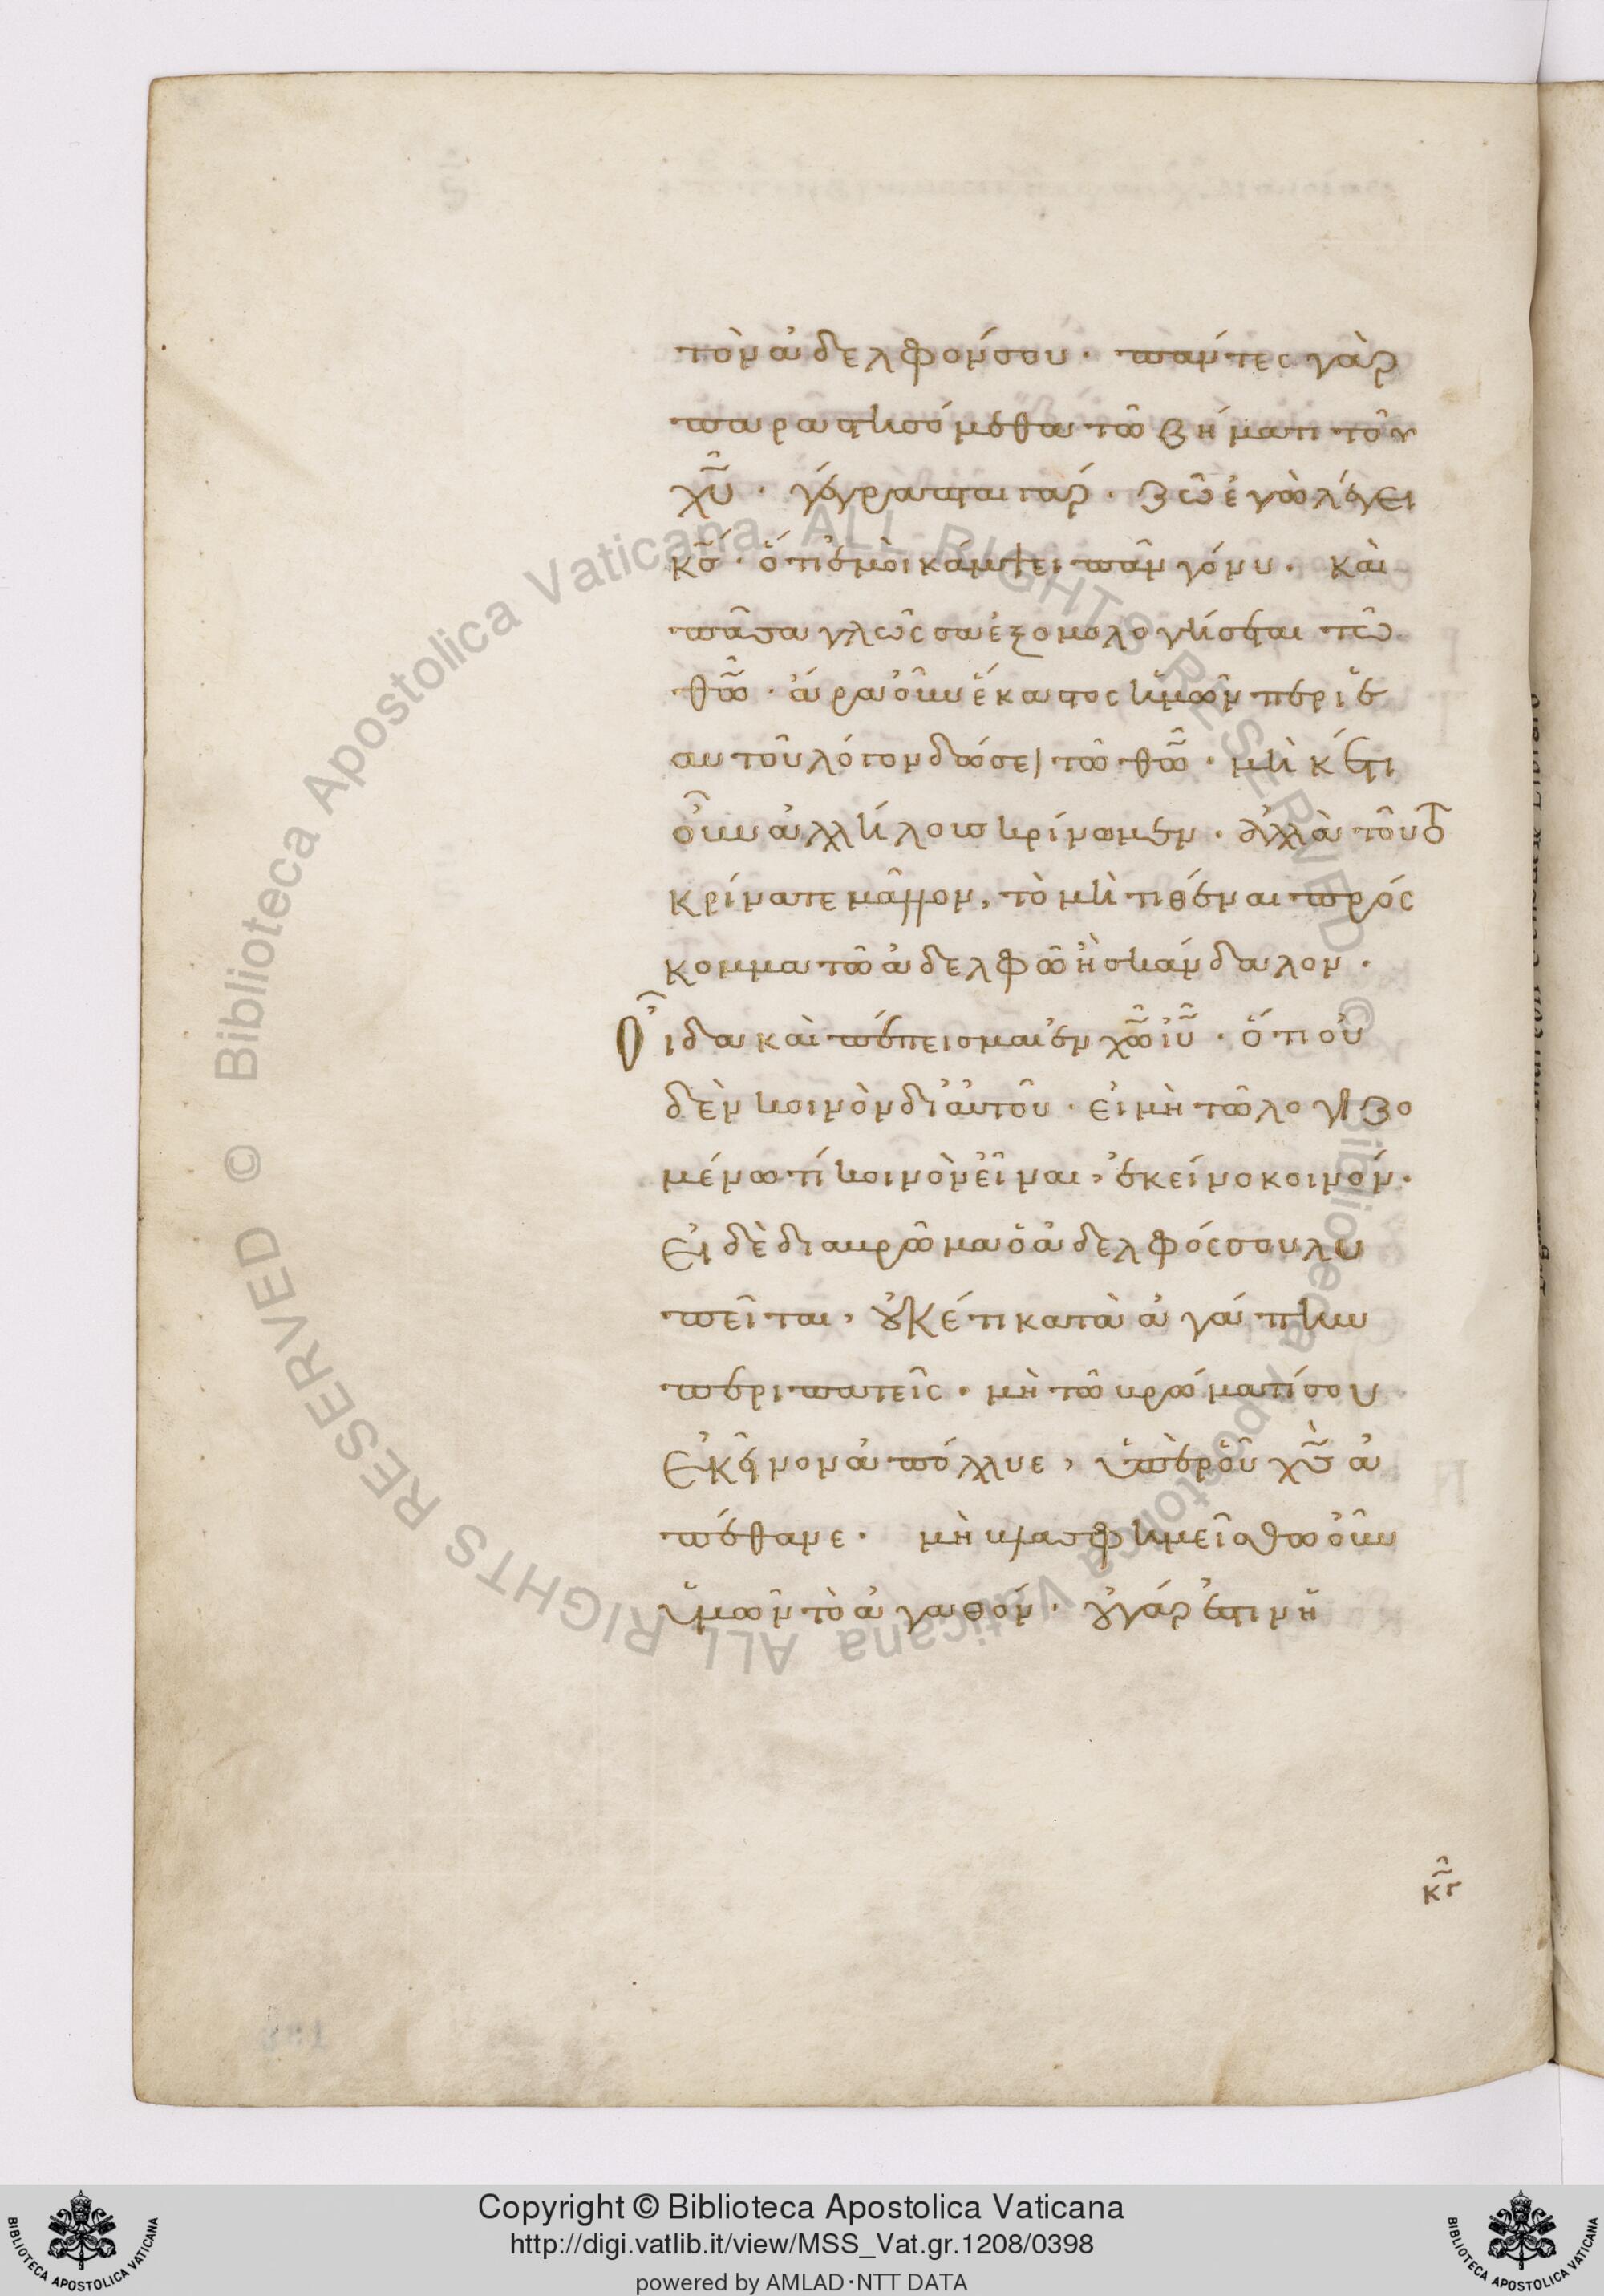 τὸν ἀδελφόν σου· πάντες γὰρ
παραστησόμεθα τῶ βήματι τοῦ
χῦ· γέγραπται γάρ· ζῶ ἐγὼ λέγει
κς· ὅτι ἐμοὶ κάμψει πᾶν γόνυ· καὶ
πᾶσα γλῶσσα ἐξομολογήσεται τῶ
θῶ· ἄρα οὖν ἕκαστος ἡμῶν περὶ ἑ
αυτοῦ λόγον δώσει τῶ θῶ· μὴ κέτι
οὖν ἀλλήλους κρίνωμεν· ἀλλὰ τοῦτο
κρίνατε μᾶλλον, τὸ μὴ τιθέναι πρός
κομμα τῶ ἀδελφῶ ἢ σκάνδαλον·
Οἶδα καὶ πέπεισμαι ἐν χῶ ιῦ· ὅτι οὐ
δὲν κοινὸν δι' αὐτοῦ· εἰ μὴ τῶ λογιζο
μένω τί κοινὸν εἶναι, ἐκείνο κοινόν·
Εἰ δὲ διαβρῶμα ὁ ἀδελφός σου λυ
πεῖται, οὐκέτι κατὰ ἀγάπην
περιπατεῖς· μὴ τῶ βρώματί σου
Ἐκεῖνον ἀπόλλυε, ὑπὲρ οὗ χς ἀ
πέθανε· μὴ βλασφημείσθω οὖν
ὑμῶν τὸ ἀγαθόν· οὐ γάρ ἐστιν ἡ
Biblioteca Apostolica Vaticana ALL RIGHTS RESERVED ©
Biblioteca Apostolica Vaticana ALL RIGHTS RESERVED ©
Copyright © Biblioteca Apostolica Vaticana
http://digi.vatlib.it/view/MSS_Vat.gr.1208/0398
powered by AMLAD·NTT DATA
BIBLIOTECA APOSTOLICA VATICANA
BIBLIOTECA APOSTOLICA VATICANA